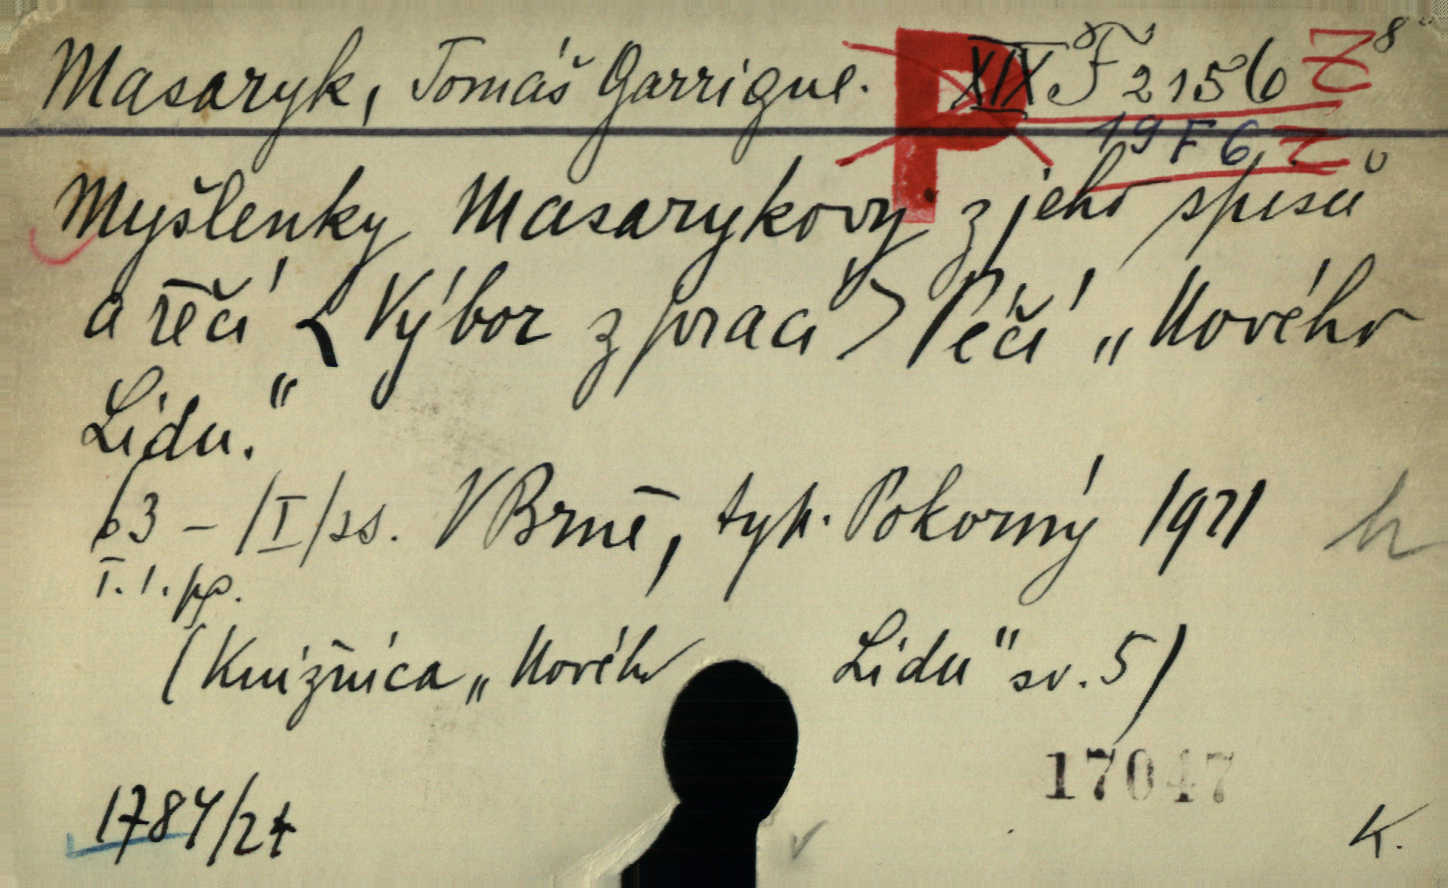 Masaryk, Tomáš Garrigue. P XIX F 2156 Z 8°
19 F 6 Z
Myšlenky Masarykovy z jeho spisů
a řečí < Výbor z prací > Péčí „Nového
Lidu."
63 - /I/ ss. V Brně, typ. Pokorný 1921 h
I. 1. pp.
(Knižnica „Nového Lidu" sv. 5)
17047
1784/24
K.